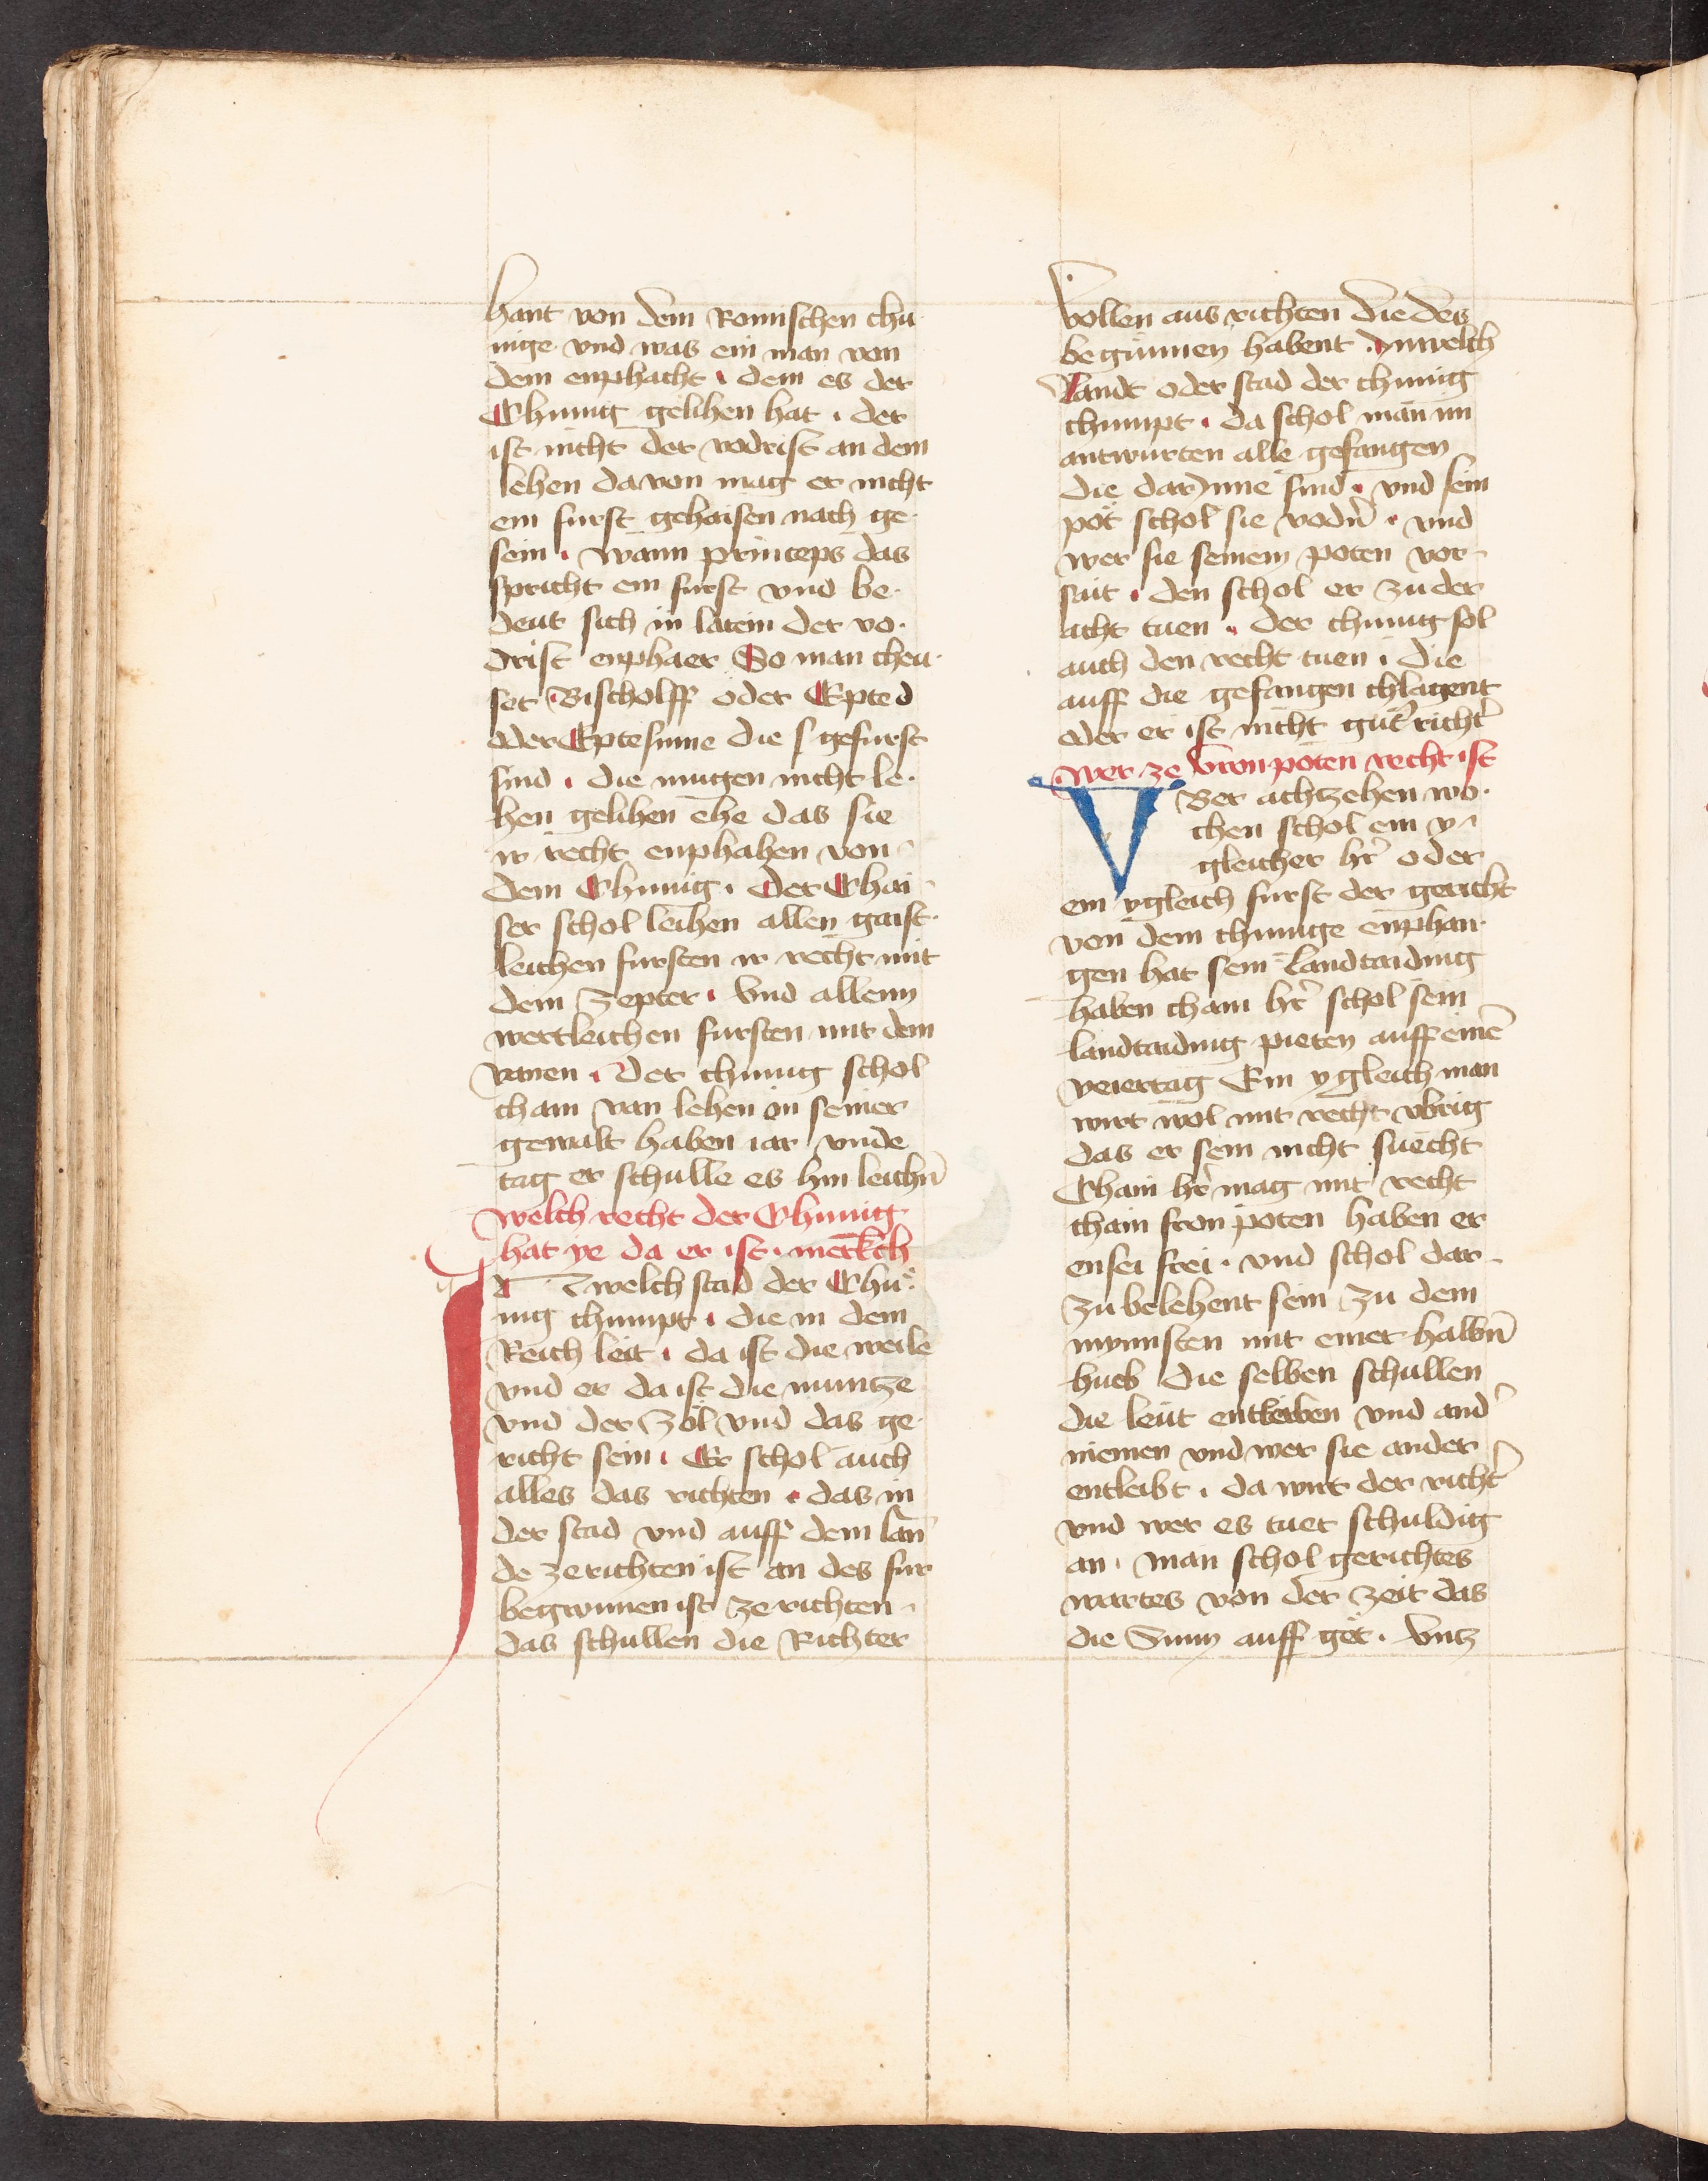 hant von dem Romischen chu
nige vnd was ein man von
dem enphacht · dem es der
Chunig gelihen hat · der
ist nicht der vodrist an dem
lehen davon mag er nicht
ein furst gehaisen nach ge
sein · wann princeps das
spricht ein furst vnd be
deut sich in latein der vo
drist enphaer So man cheu
set Bischolff oder Epted
oder Eptesinne die s gefurst
sind · die mugen nicht le
hen gelihen ehe das sie
ir recht enphahen von
dem Chunig · der Chai
ser schol leihen allen gaist
leichen fursten ir recht mit
dem Zepter · Vnd allenn
wertleichen fursten mit dem
vanen · Der chunig schol
chain van lehen in seiner
gewalt haben iar vnde
tag er schulle es hin leichn̄
welch recht der Chunig
hat ye da er ist · merkch
welch stad der Chu
nig chumpt · die in dem
Reich leit · da ist die weile
vnd er da ist die muntze
vnd der Zol vnd das ge
richt sein · Er schol auch
alles das richten · das in
der stad vnd auff dem lan
de ze richten ist an des fur
begunnen ist ze richten
das schullen die Richter
vollen aus richten die des
begunnen habent · In welch
Landt oder stad der chunig
chumpt · da schol man im
antwurten alle gefangen
die darynne sind · vnd sein
pot schol sie vodn̄ · vnd
wer sie seinem poten vor
sait · den schol er zu der
acht tuen · der chunig sol
auch den recht tuen · die
auff die gefangen chlagent
oder er ist nicht gut richt̄
wer ze vronpoten recht ist
VBer achtzehen wo
chen schol ein y
gleicher hr̄ oder
ein ygleich furst der gericht
von dem chunige enphan
gen hat sein Landtaiding
haben chain hr̄ schol sein
landtaiding pieten auff einē
veiertag Ein ygleich man
wirt wol mit recht vbrig
das er sein nicht suecht
Chain hr̄ mag mit recht
chain fron poten haben er
ensei frei · vnd schol dar
zu belehent sein zu dem
mynnsten mit einer halbn̄
hueb die selben schullen
die leut entleiben vnd and̄
niemen vnd wer sie ander
entleibt · da wirt der richt̄
vnd wer es tuet schuldig
an · man schol gerichtes
wartes von der zeit das
die Sunn auff get · Vntz